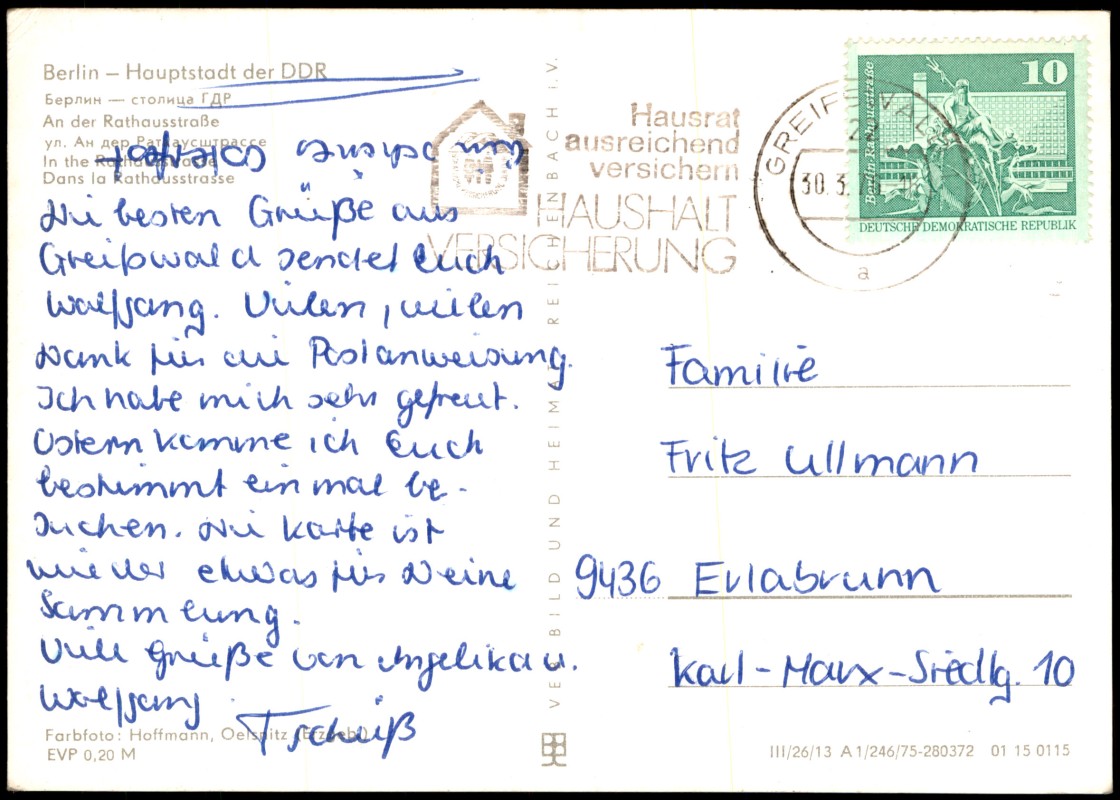 Berlin – Hauptstadt der DDR
Берлин — столица ГДР
An der Rathausstraße
ул. Ан дер Ратхаусштрассе
In the Rathausstrasse
Dans la Rathausstrasse
schönes Osterfest
Die besten Grüße aus
Greißwald sendet Euch
Wolfgang. Vielen, vielen
Dank für die Postanweisung.
Ich habe mich sehr gefreut.
Ostern komme ich Euch
bestimmt einmal be-
suchen. Die Karte ist
wieder etwas für Deine
Sammlung.
Viele Grüße von Angelika u.
Wolfgang
Tschüß
Farbfoto: Hoffmann, Oelsnitz (Erzgeb.)
EVP 0,20 M
VEB BILD UND HEIMAT REICHENBACH I.V.
Hausrat
ausreichend
versichern
HAUSHALT
VERSICHERUNG
GREIFSWALD
30.3.
a
10
Berlin-Rathausstraße
DEUTSCHE DEMOKRATISCHE REPUBLIK
Familie
Fritz Ullmann
9436 Erlabrunn
Karl-Marx-Siedlg. 10
III/26/13 A1/246/75-280372 01 15 0115